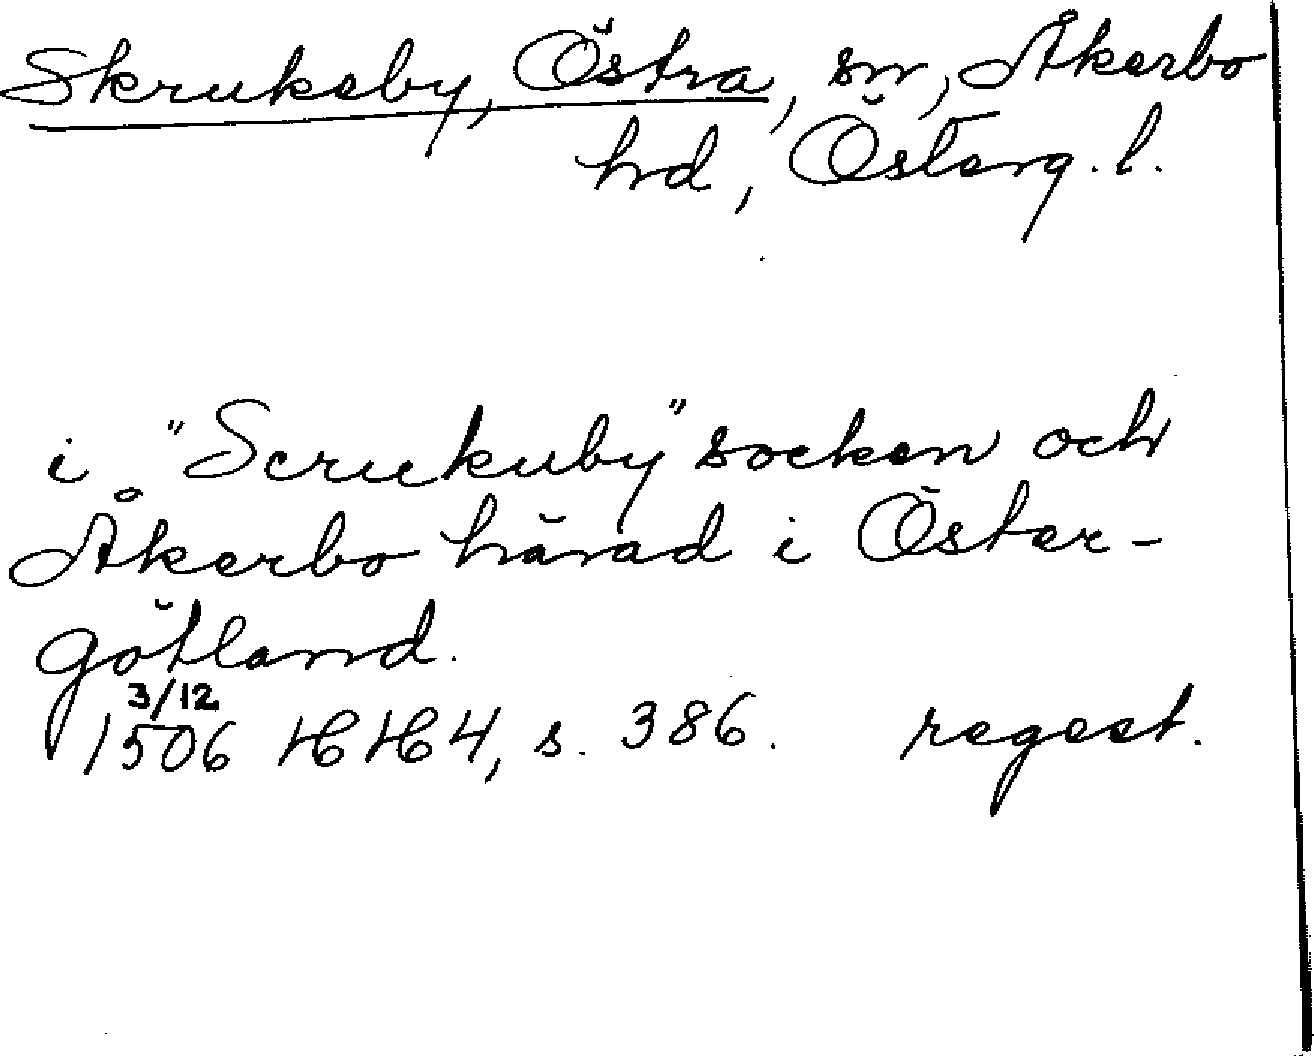 Skrukeby, Östra, sn, Åkerbo
hd, Österg. l.
i "Scrukuby" socken och
Åkerbo härad i Öster-
götland.
3/12
1506 HH 4, s. 386. regest.